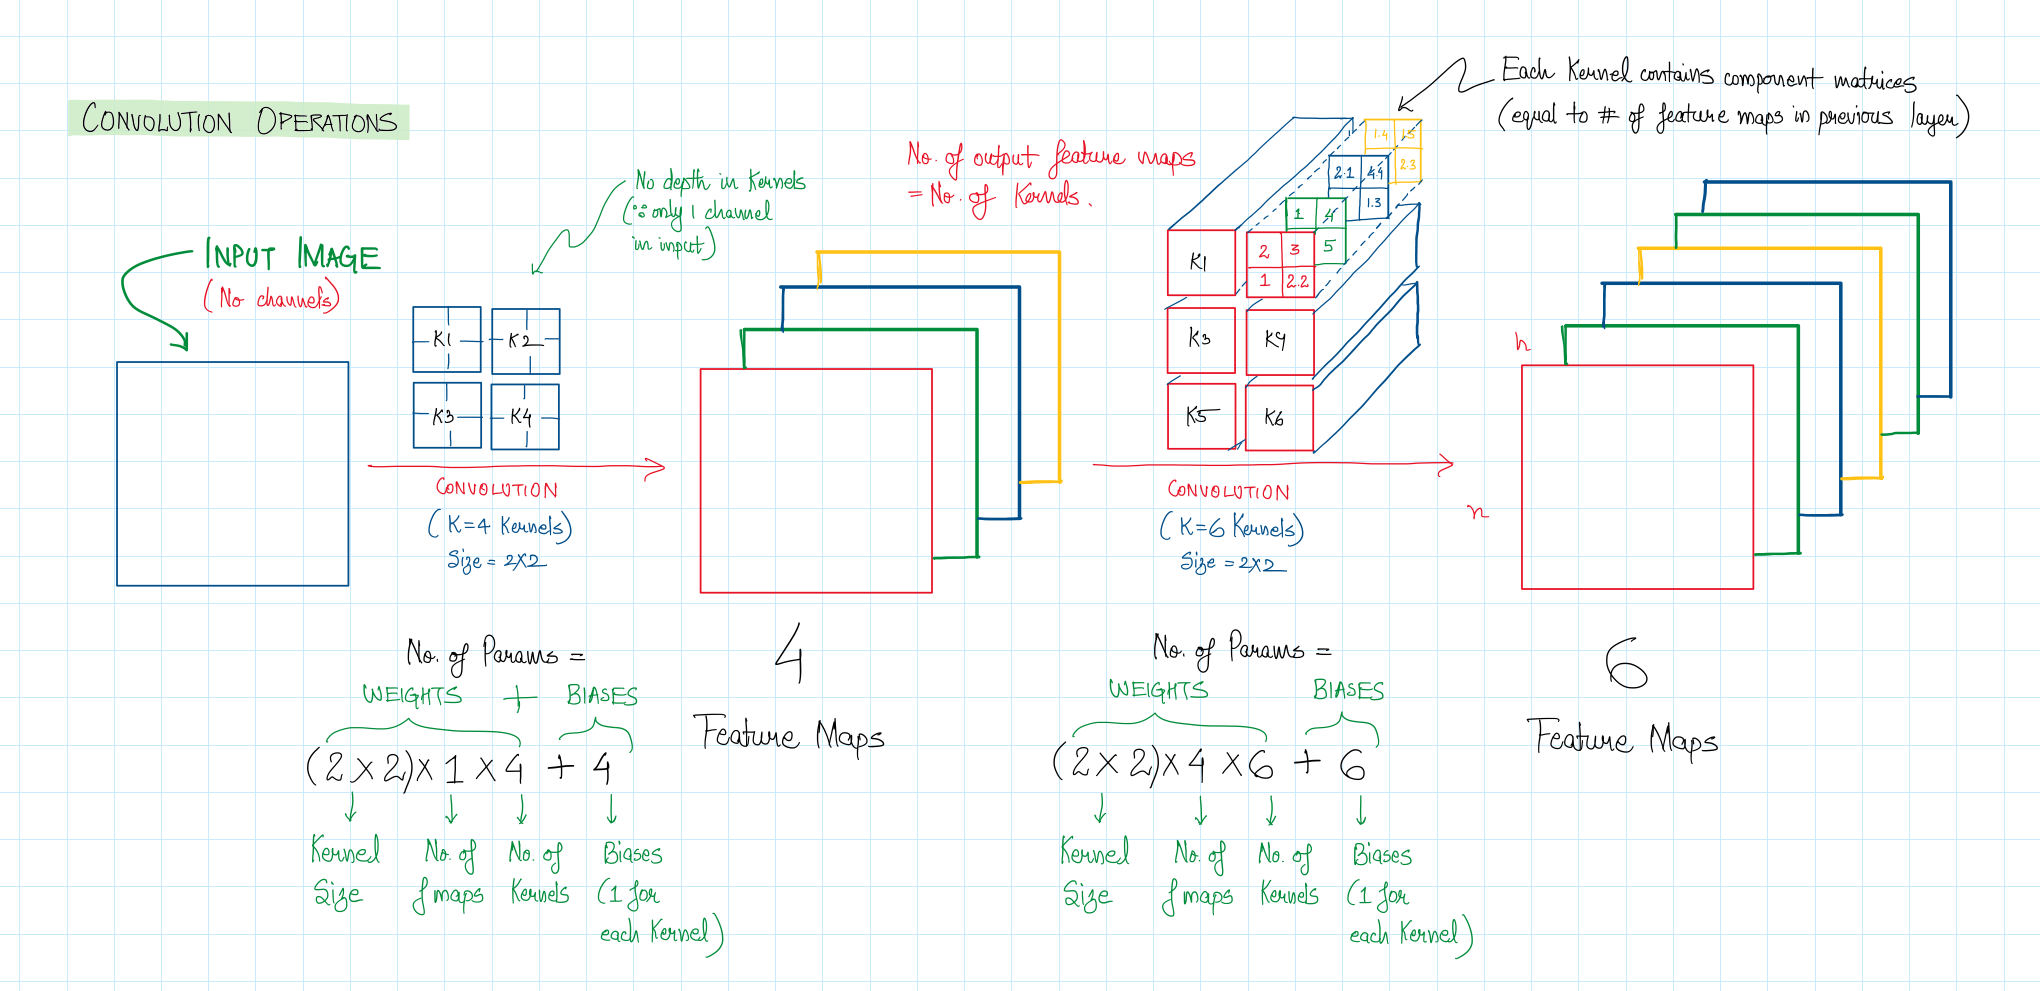 CONVOLUTION OPERATIONS
INPUT IMAGE
(No channels)
No depth in Kernels
(∵ only 1 channel
in input)
K1 K2
K3 K4
CONVOLUTION
(K=4 Kernels)
Size = 2X2
No. of output feature maps
= No. of Kernels.
Each Kernel contains component matrices
(equal to # of feature maps in previous layer)
1.4 1.5
2.3
2.1 4.4
1.3
1 4
5
2 3
1 2.2
K1
K3 K4
K5 K6
CONVOLUTION
(K=6 Kernels)
Size = 2X2
h
n
No. of Params =
WEIGHTS + BIASES
(2 X 2) X 1 X 4 + 4
Kernel
Size
No. of
f maps
No. of
Kernels
Biases
(1 for
each Kernel)
4
Feature Maps
No. of Params =
WEIGHTS BIASES
(2 X 2) X 4 X 6 + 6
Kernel
Size
No. of
f maps
No. of
Kernels
Biases
(1 for
each Kernel)
6
Feature Maps